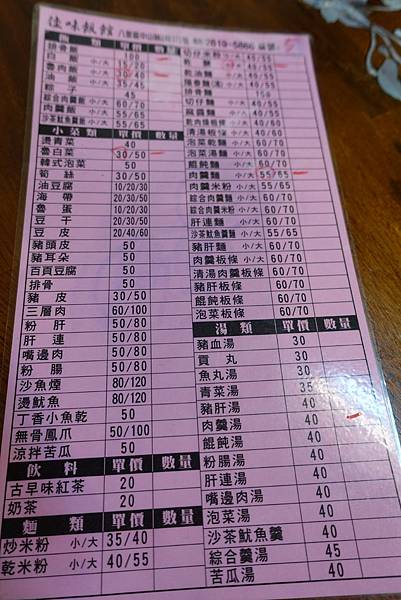 佳味飯館 八里區中山路 2619-5866
飯 類 單價 數量
排骨飯 100
白飯 小/大 10/20
魯肉飯 小/大 30/40
油飯 小/大 35/45
粽子 45
綜合肉羹飯 小/大 60/70
肉羹飯 小/大 55/65
沙茶魷魚羹飯 小/大 55/65
小菜類 單價 數量
燙青菜 40
魯白菜 30/50
韓式泡菜 50
筍絲 30/50
油豆腐 10/20/30
海帶 20/30/50
魯蛋 10/20/30
豆干 20/30/50
豆皮 20/40/60
豬頭皮 50
豬耳朵 50
百頁豆腐 50
排骨 50
豬皮 30/50
三層肉 60/100
粉肝 50/80
肝連 50/80
嘴邊肉 50/80
粉腸 50/80
沙魚煙 80/120
燙魷魚 80/120
丁香小魚乾 50
無骨鳳爪 50/100
涼拌苦瓜 50
飲料 單價 數量
古早味紅茶 20
奶茶 20
麵類 單價 數量
炒米粉 小/大 35/40
乾米粉 小/大 40/55
切仔米粉 小/大 40/55
小/大 40/55
乾油麵 小/大
排骨麵 150
切仔麵 小/大
麻醬麵 小/大
清湯粄條 小/大
泡菜乾麵 小/大 60/70
泡菜湯麵 小/大 60/70
餛飩麵 小/大 60/70
肉羹麵 小/大 55/65
肉羹米粉 小/大 55/65
綜合肉羹麵 小/大 60/70
綜合肉羹米粉 小/大 60/70
肝連麵 小/大 60/70
沙茶魷魚羹麵 小/大 55/65
豬肝麵 小/大 60/70
肉羹粄條 小/大 60/70
清湯肉羹粄條 小/大 60/70
豬肝粄條 60/70
餛飩粄條 60/70
泡菜粄條 60/70
湯類 單價 數量
豬血湯 30
貢丸 30
魚丸湯 30
青菜湯 35
豬肝湯 40
肉羹湯 40
餛飩湯 40
粉腸湯 40
肝連湯 40
嘴邊肉湯 40
泡菜湯 40
沙茶魷魚羹 40
綜合羹湯 45
苦瓜湯 40